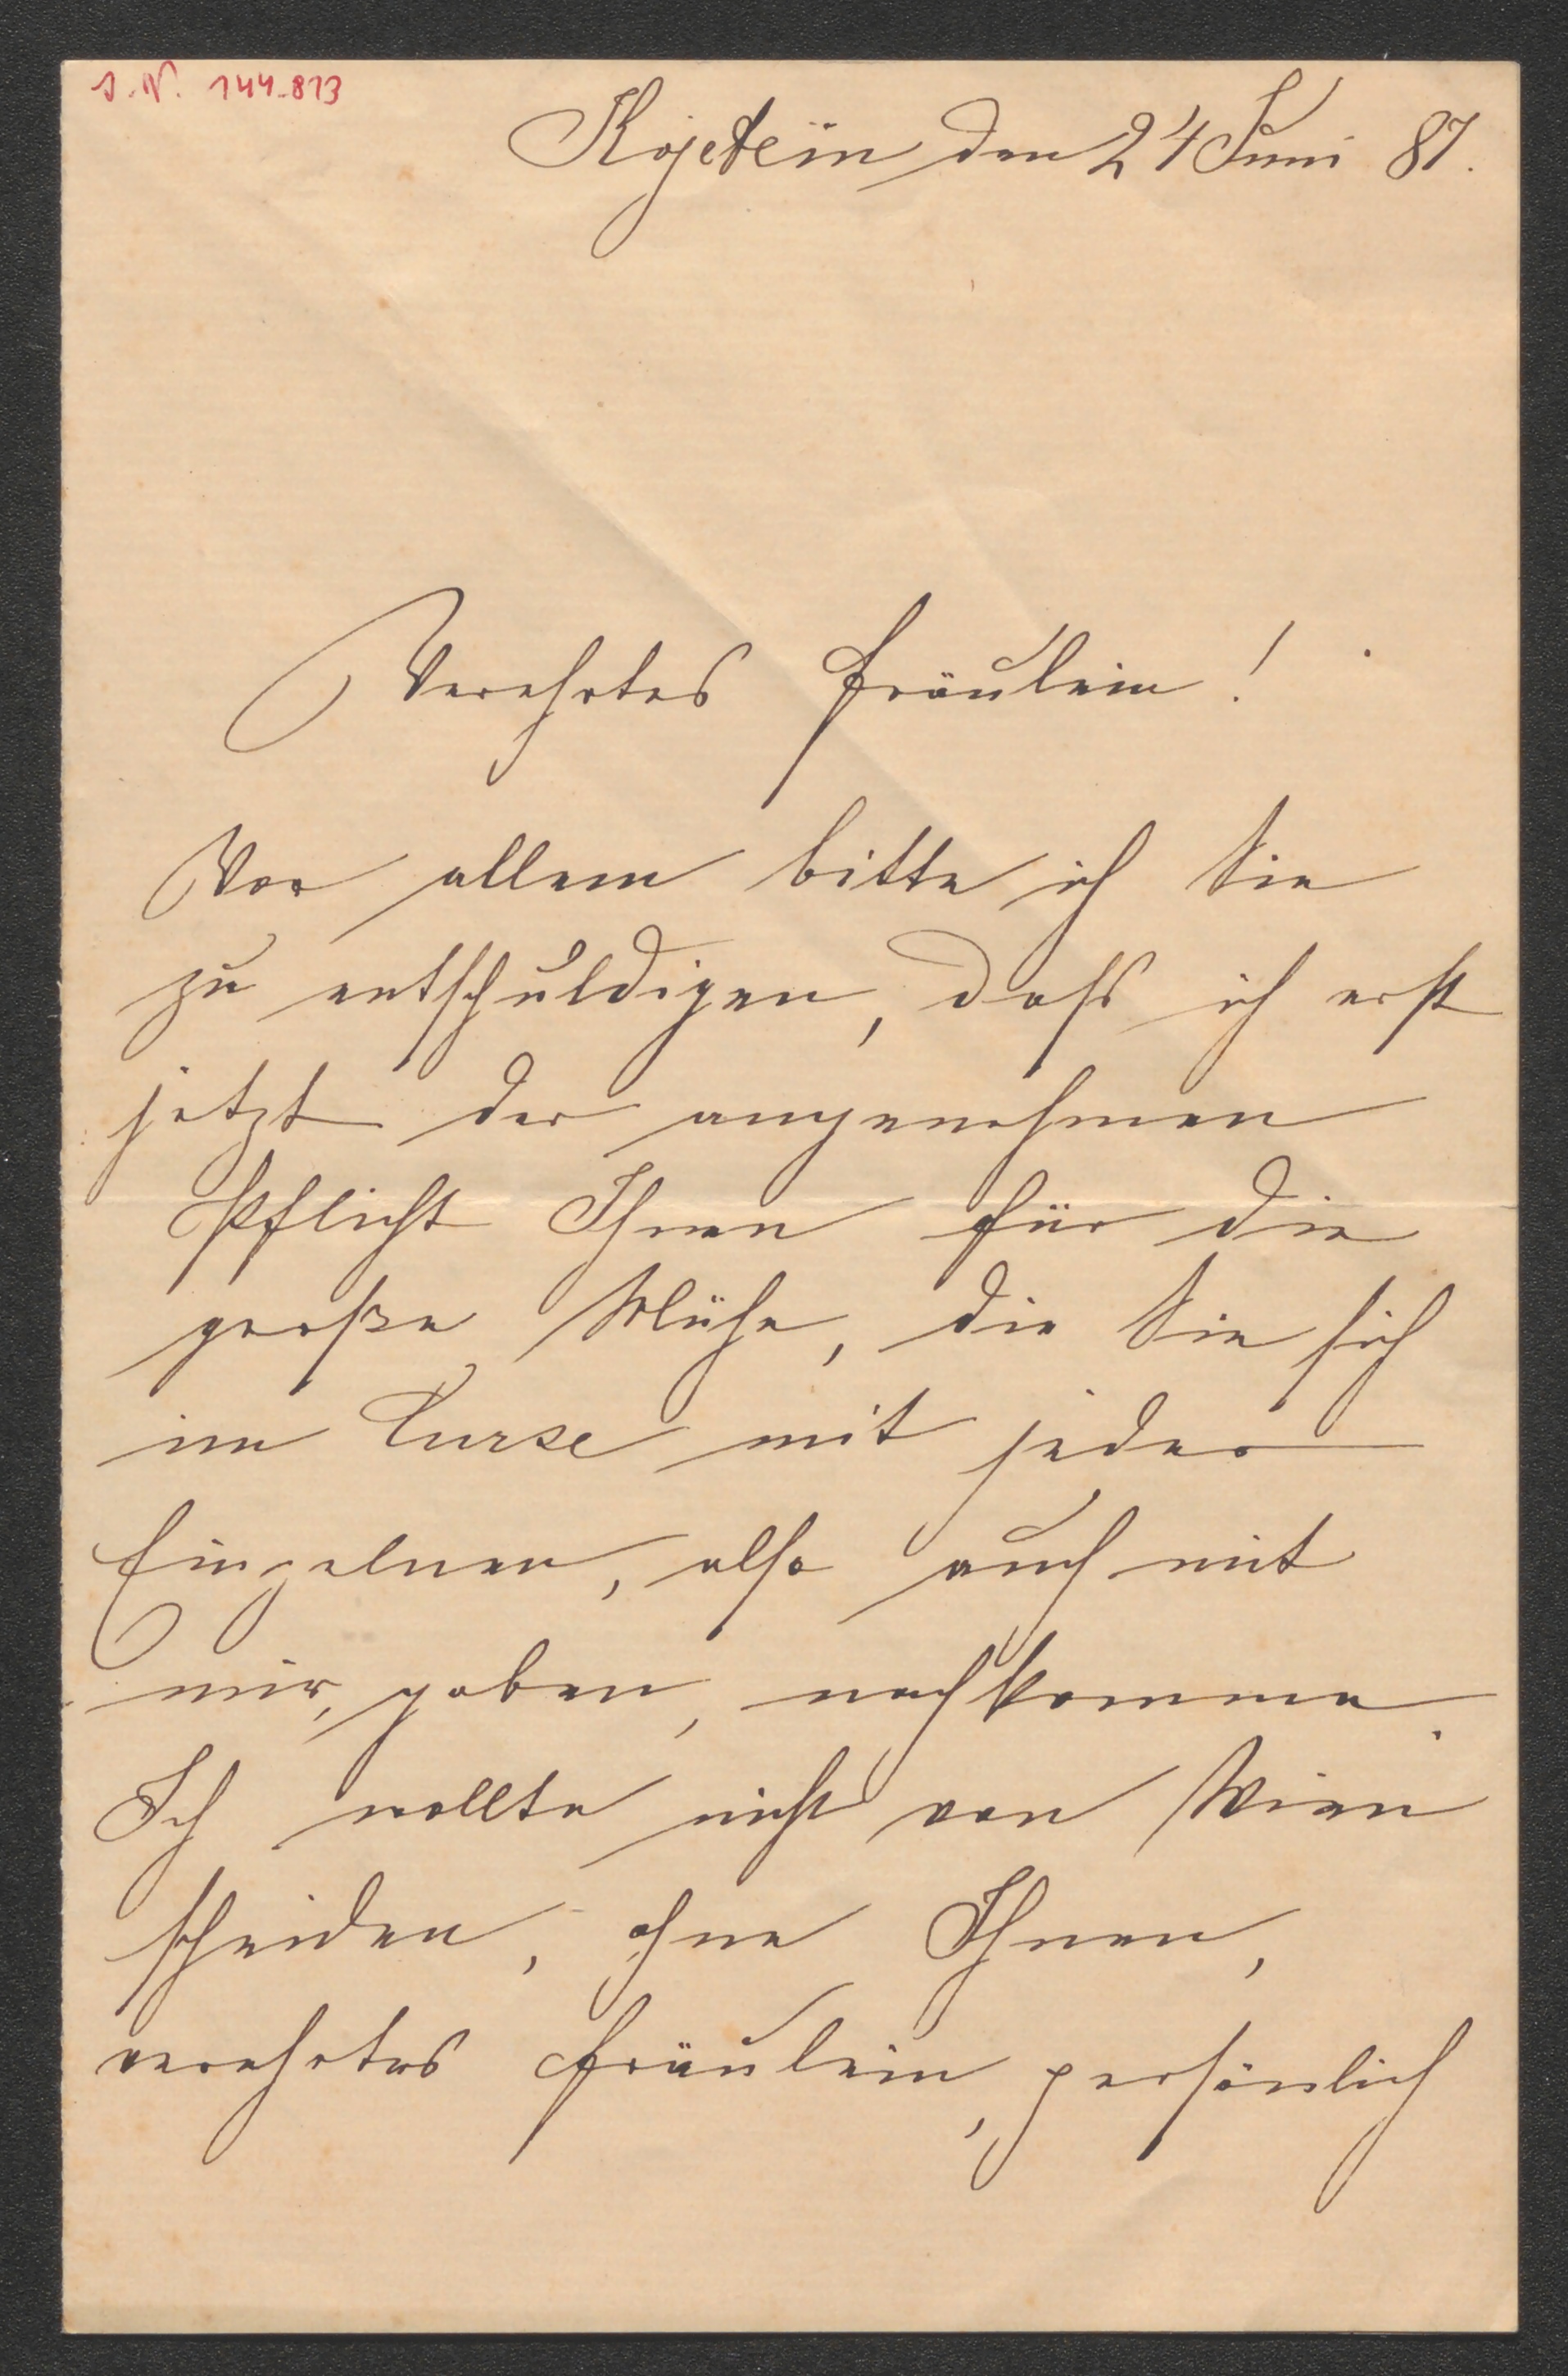 I.N. 144.813
Kojetein den 24 Juni 87.
Verehrtes Fräulein!
Vor allem bitte ich Sie
zu entschuldigen, dass ich erst
jetzt der angenehmen
Pflicht Ihnen für die
große Mühe, die Sie sich
im Curse mit jeder
Einzelnen, also auch mit
mir, gaben, nachkomme.
Ich wollte nicht von Wien
scheiden, ohne Ihnen,
verehrtes Fräulein, persönlich